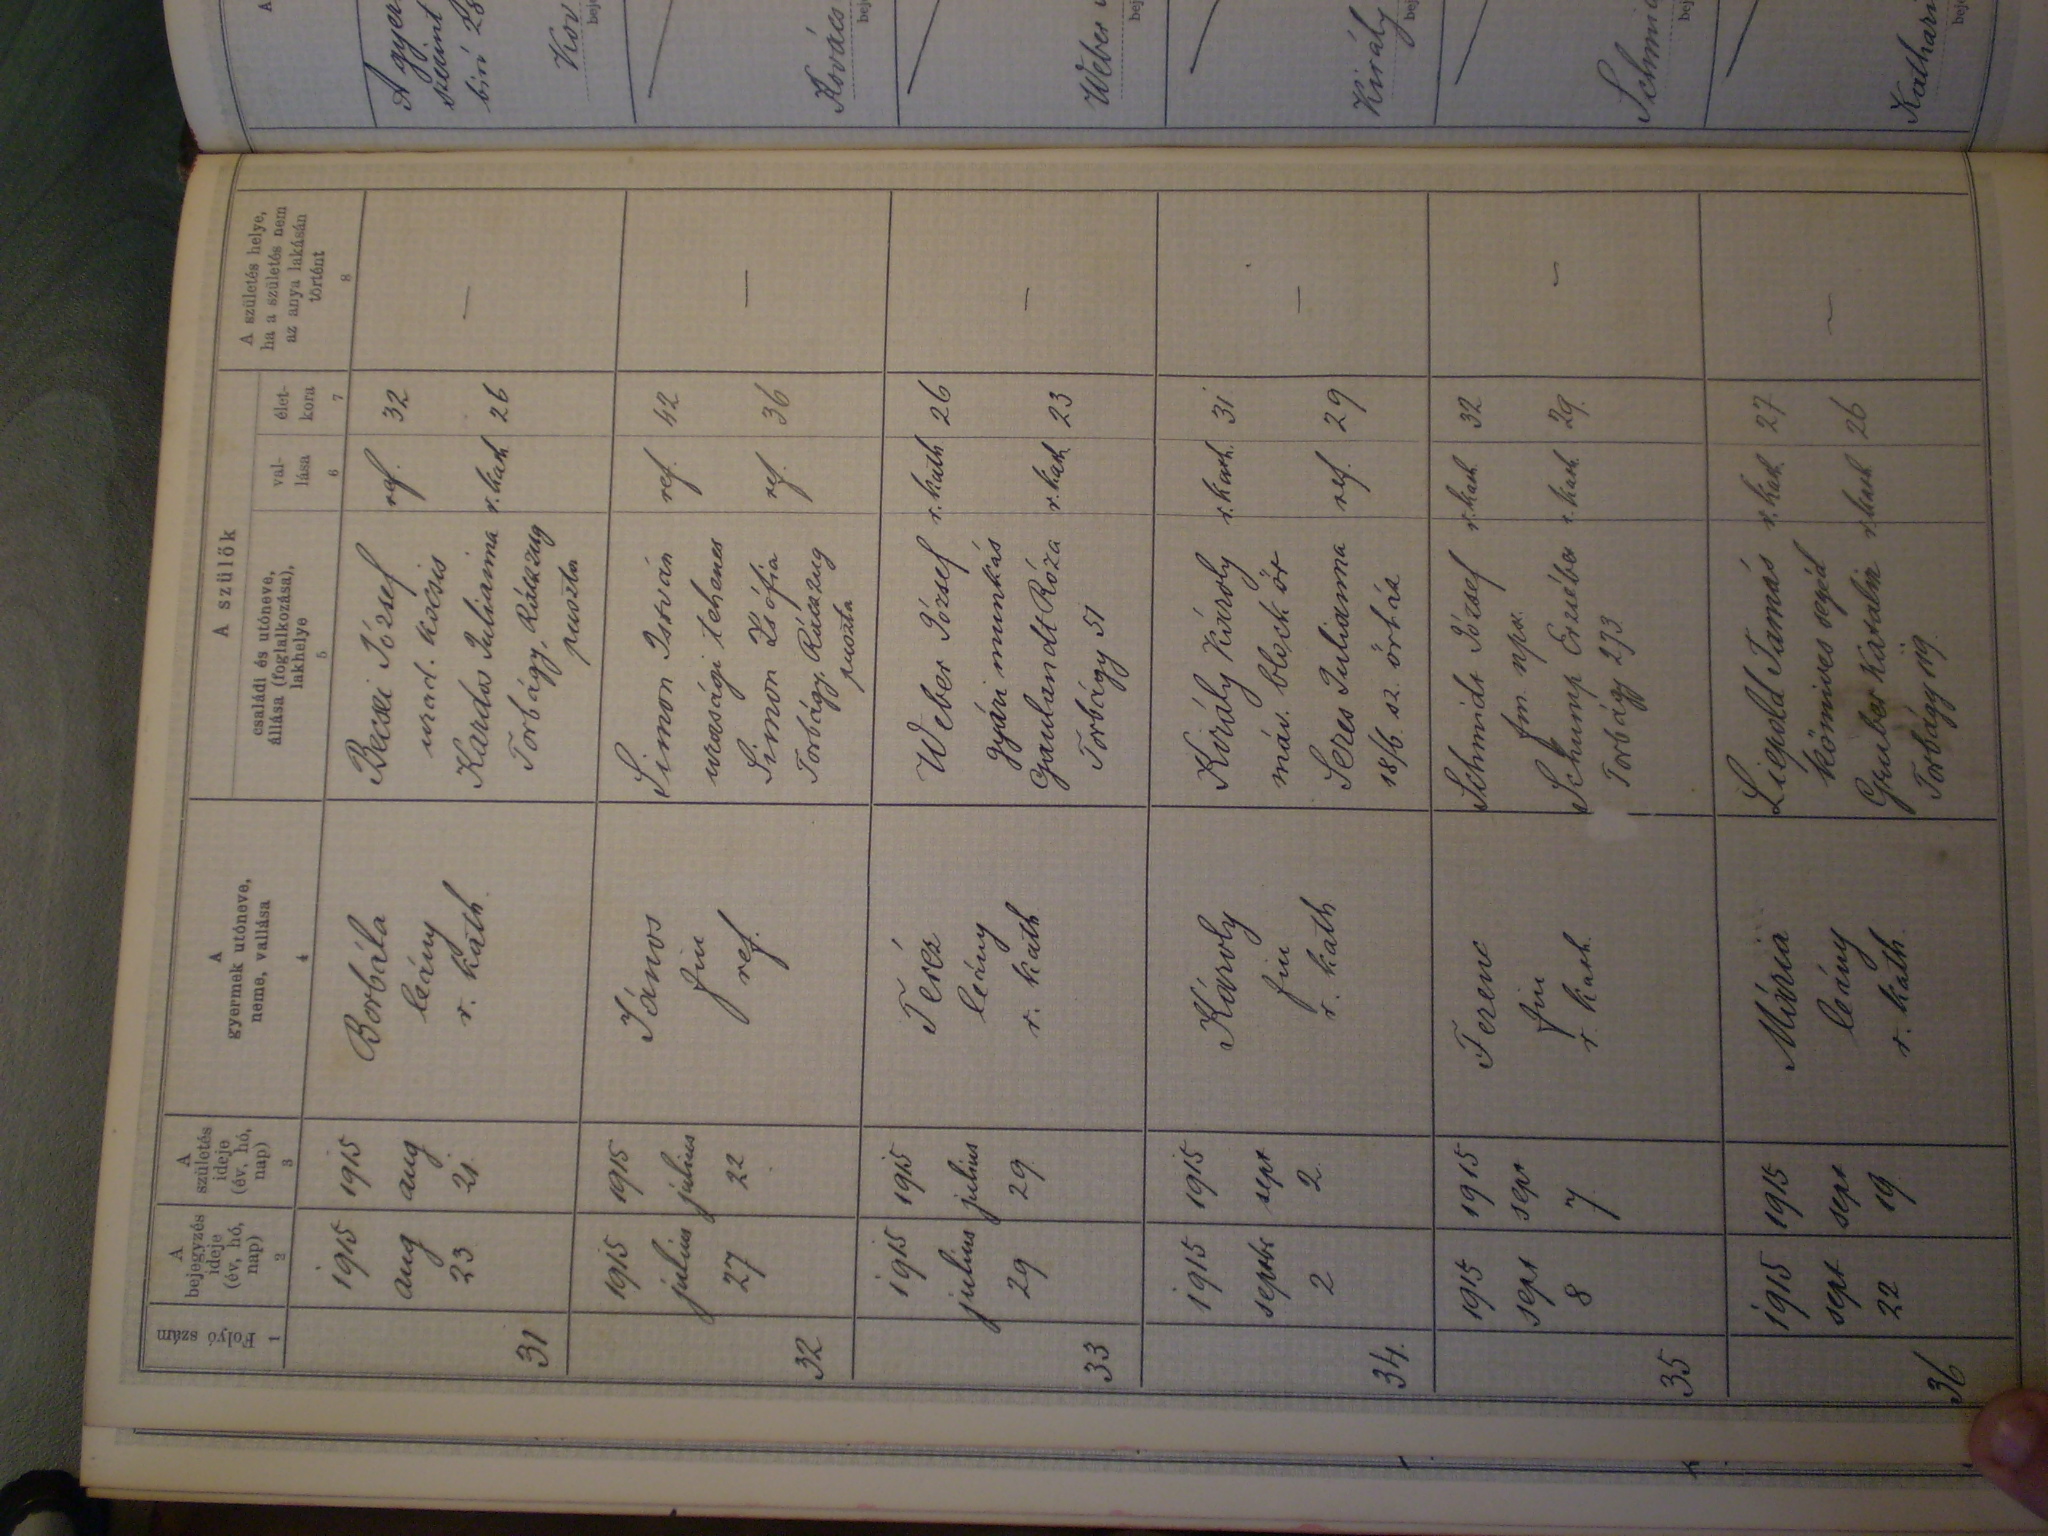 Folyó szám
1
A
bejegyzés
ideje
(év, hó,
nap)
2
A
születés
ideje
(év, hó,
nap)
3
A
gyermek utóneve,
neme, vallása
4
A szülők
családi és utóneve,
állása (foglalkozása),
lakhelye
5
val-
lása
6
élet-
kora
7
A születés helye,
ha a születés nem
az anya lakásán
történt
8
31
1915
aug
23
1915
aug
21.
Borbála
leány
r. kath.
Becsei József
urad. kocsis
Kardos Julianna
Torbágy, Ráczzug
puszta
ref.
r. kath
32
26
—
32
1915
július
27
1915
július
22
János
fiu
ref.
Simon István
urasági tehenes
Simon Zsófia
Torbágy, Ráczzug
puszta
ref.
ref.
42
36
—
33
1915
július
29
1915
július
29.
Teréz
leány
r. kath
Weber József
gyári munkás
Róza
Torbágy 51
r. kath
r. kath
26
23
—
34.
1915
septbr
2
1915
sept
2.
Károly
fiu
r. kath
Király Károly
máv. block őr
Seres Julianna
18/b. sz. őrház
r. kath.
ref.
31
29
—
35
1915
sept
8
1915
sept
7
Ferenc
fiu
r. kath.
Schmidt József
fm. nps.
Schump Erzsébet
Torbágy 273
r. kath
r. kath
32
29.
—
36
1915
sept
22
1915
sept
19
Mária
leány
r. kath.
Liepold Tamás
kőmives segéd
Gruber Katalin
Torbágy 119.
r. kath
r. kath
27
26
—
A
A gyer
szerint
biri
Kov
bej
Kovács
bej
Weber
bej
Király
bej
Schmi
bej
Kathari
beje